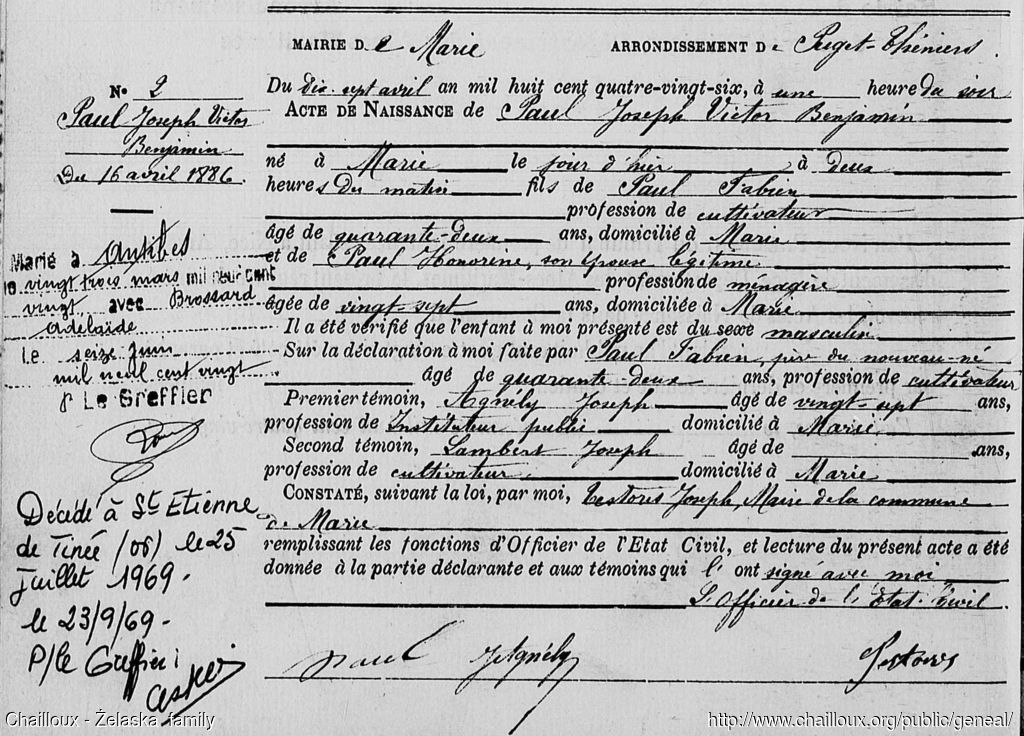 MAIRIE DE Marie ARRONDISSEMENT De Puget-Théniers.
N° 2
Paul Joseph Victor
Benjamin
Du 16 avril 1886.
Marié à Antibes
le vingt trois mars mil neuf cent
vingt avec Brossard
Adelaïde
Le seize Juin
mil neuf cent vingt
P Le Greffier
Décédé à St Etienne
de Tinée (06) le 25
juillet 1969-
le 23/9/69-
P/le Greffier:
Du dix-sept avril an mil huit cent quatre-vingt-six, à une heure du soir
ACTE DE NAISSANCE de Paul Joseph Victor Benjamin
né à Marie le jour d'hier à deux
heures du matin fils de Paul Fabien
profession de cultivateur
âgé de quarante-deux ans, domicilié à Marie
et de Paul Honorine, son épouse légitime
profession de ménagère
âgée de vingt-sept ans, domiciliée à Marie
Il a été vérifié que l'enfant à moi présenté est du sexe masculin
Sur la déclaration à moi faite par Paul Fabien, père du nouveau-né
âgé de quarante-deux ans, profession de cultivateur
Premier témoin, Agnély Joseph âgé de vingt-sept ans,
profession de Instituteur public domicilié à Marie
Second témoin, Lambert Joseph âgé de ans,
profession de cultivateur domicilié à Marie
CONSTATÉ, suivant la loi, par moi, Testoris Joseph, Maire de la commune
de Marie
remplissant les fonctions d'Officier de l'Etat Civil, et lecture du présent acte a été
donnée à la partie déclarante et aux témoins qui l' ont signé avec moi
L'Officier de l'Etat-Civil
Paul J Agnély Testoris
Chailloux - Żelaska family http://www.chailloux.org/public/geneal/